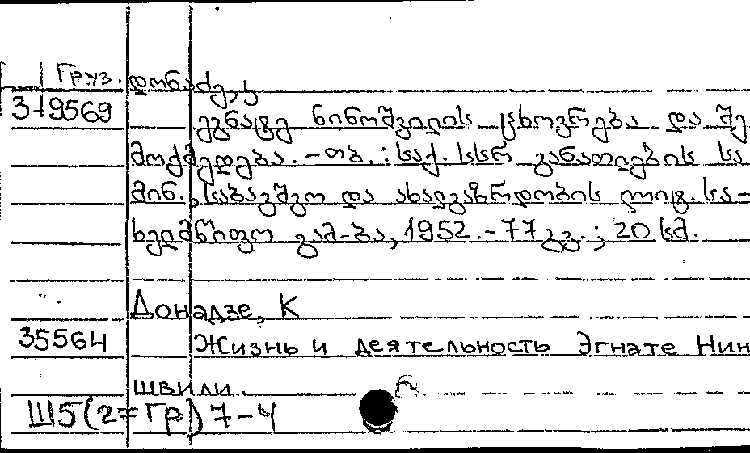 Груз. დონაძე, კ
319569 ეგნატე ნინოშვილის ცხოვრება და შე
მოქმედება. - თბ. : საქ. სსრ განათლების სა
მინ., საბავშვო და ახალგაზრდობის ლიტ. სა-
ხელმწიფო გამ-ბა, 1952. - 77 გვ. ; 20 სმ.
Донадзе, К
35564 Жизнь и деятельность Эгнате Нин
швили.
Ш5(2=Гр)7-4